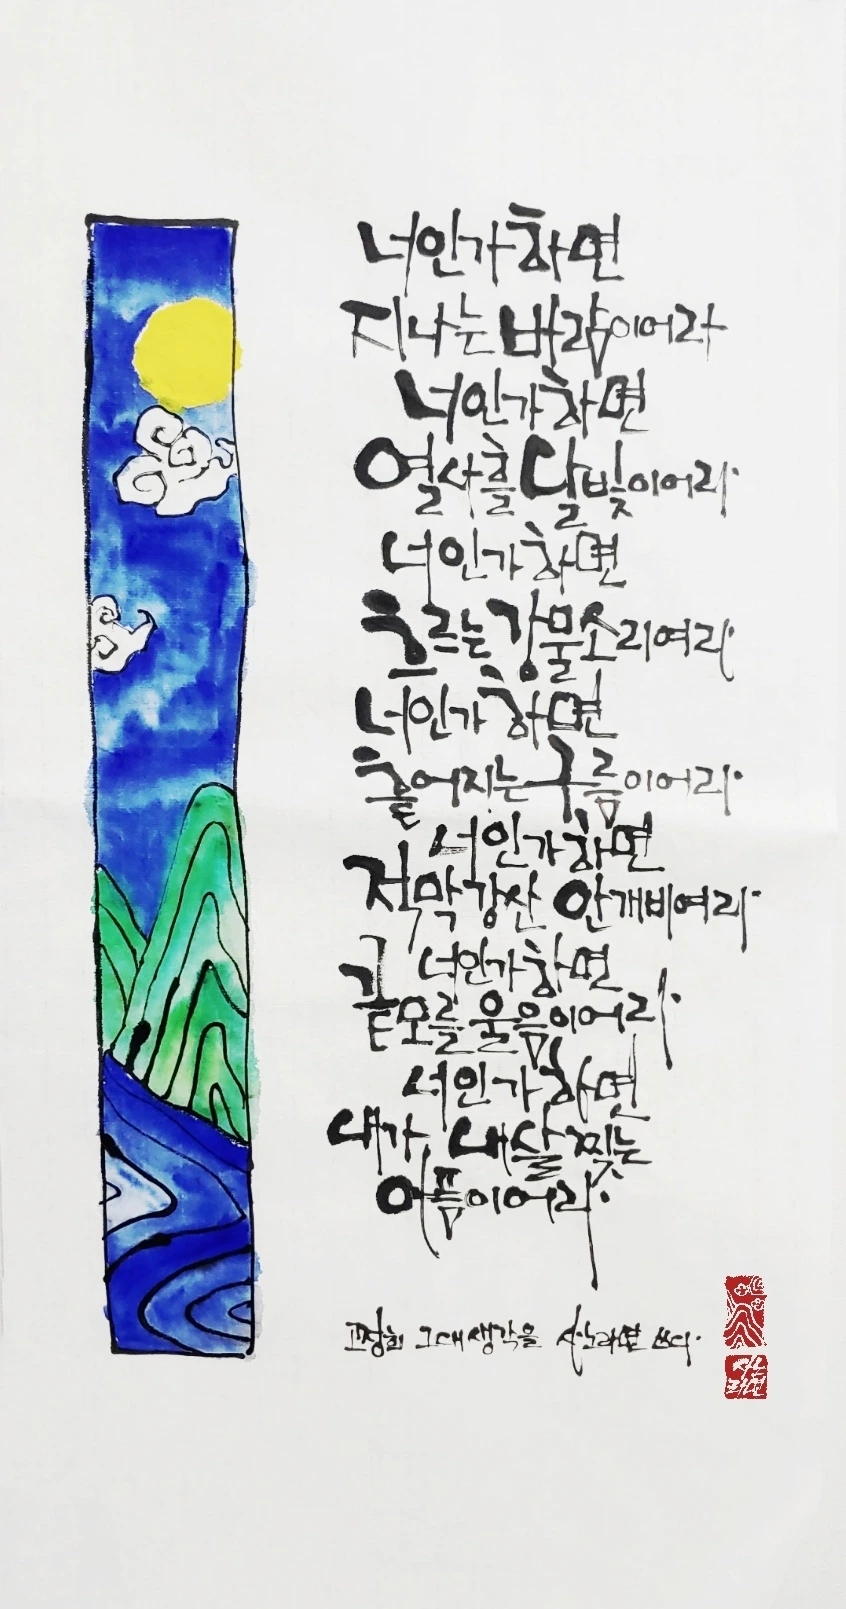 너인가 하면
지나는 바람이어라
너인가 하면
열사흘 달빛이어라
너인가 하면
흐르는 강물소리여라
너인가 하면
흩어지는 구름이어라
너인가 하면
적막강산 안개비여라
너인가 하면
끝모를 울음이어라
너인가 하면
내가 내살 찢는
어픔이어라
고정희 그대생각을 산라면 쓰다.